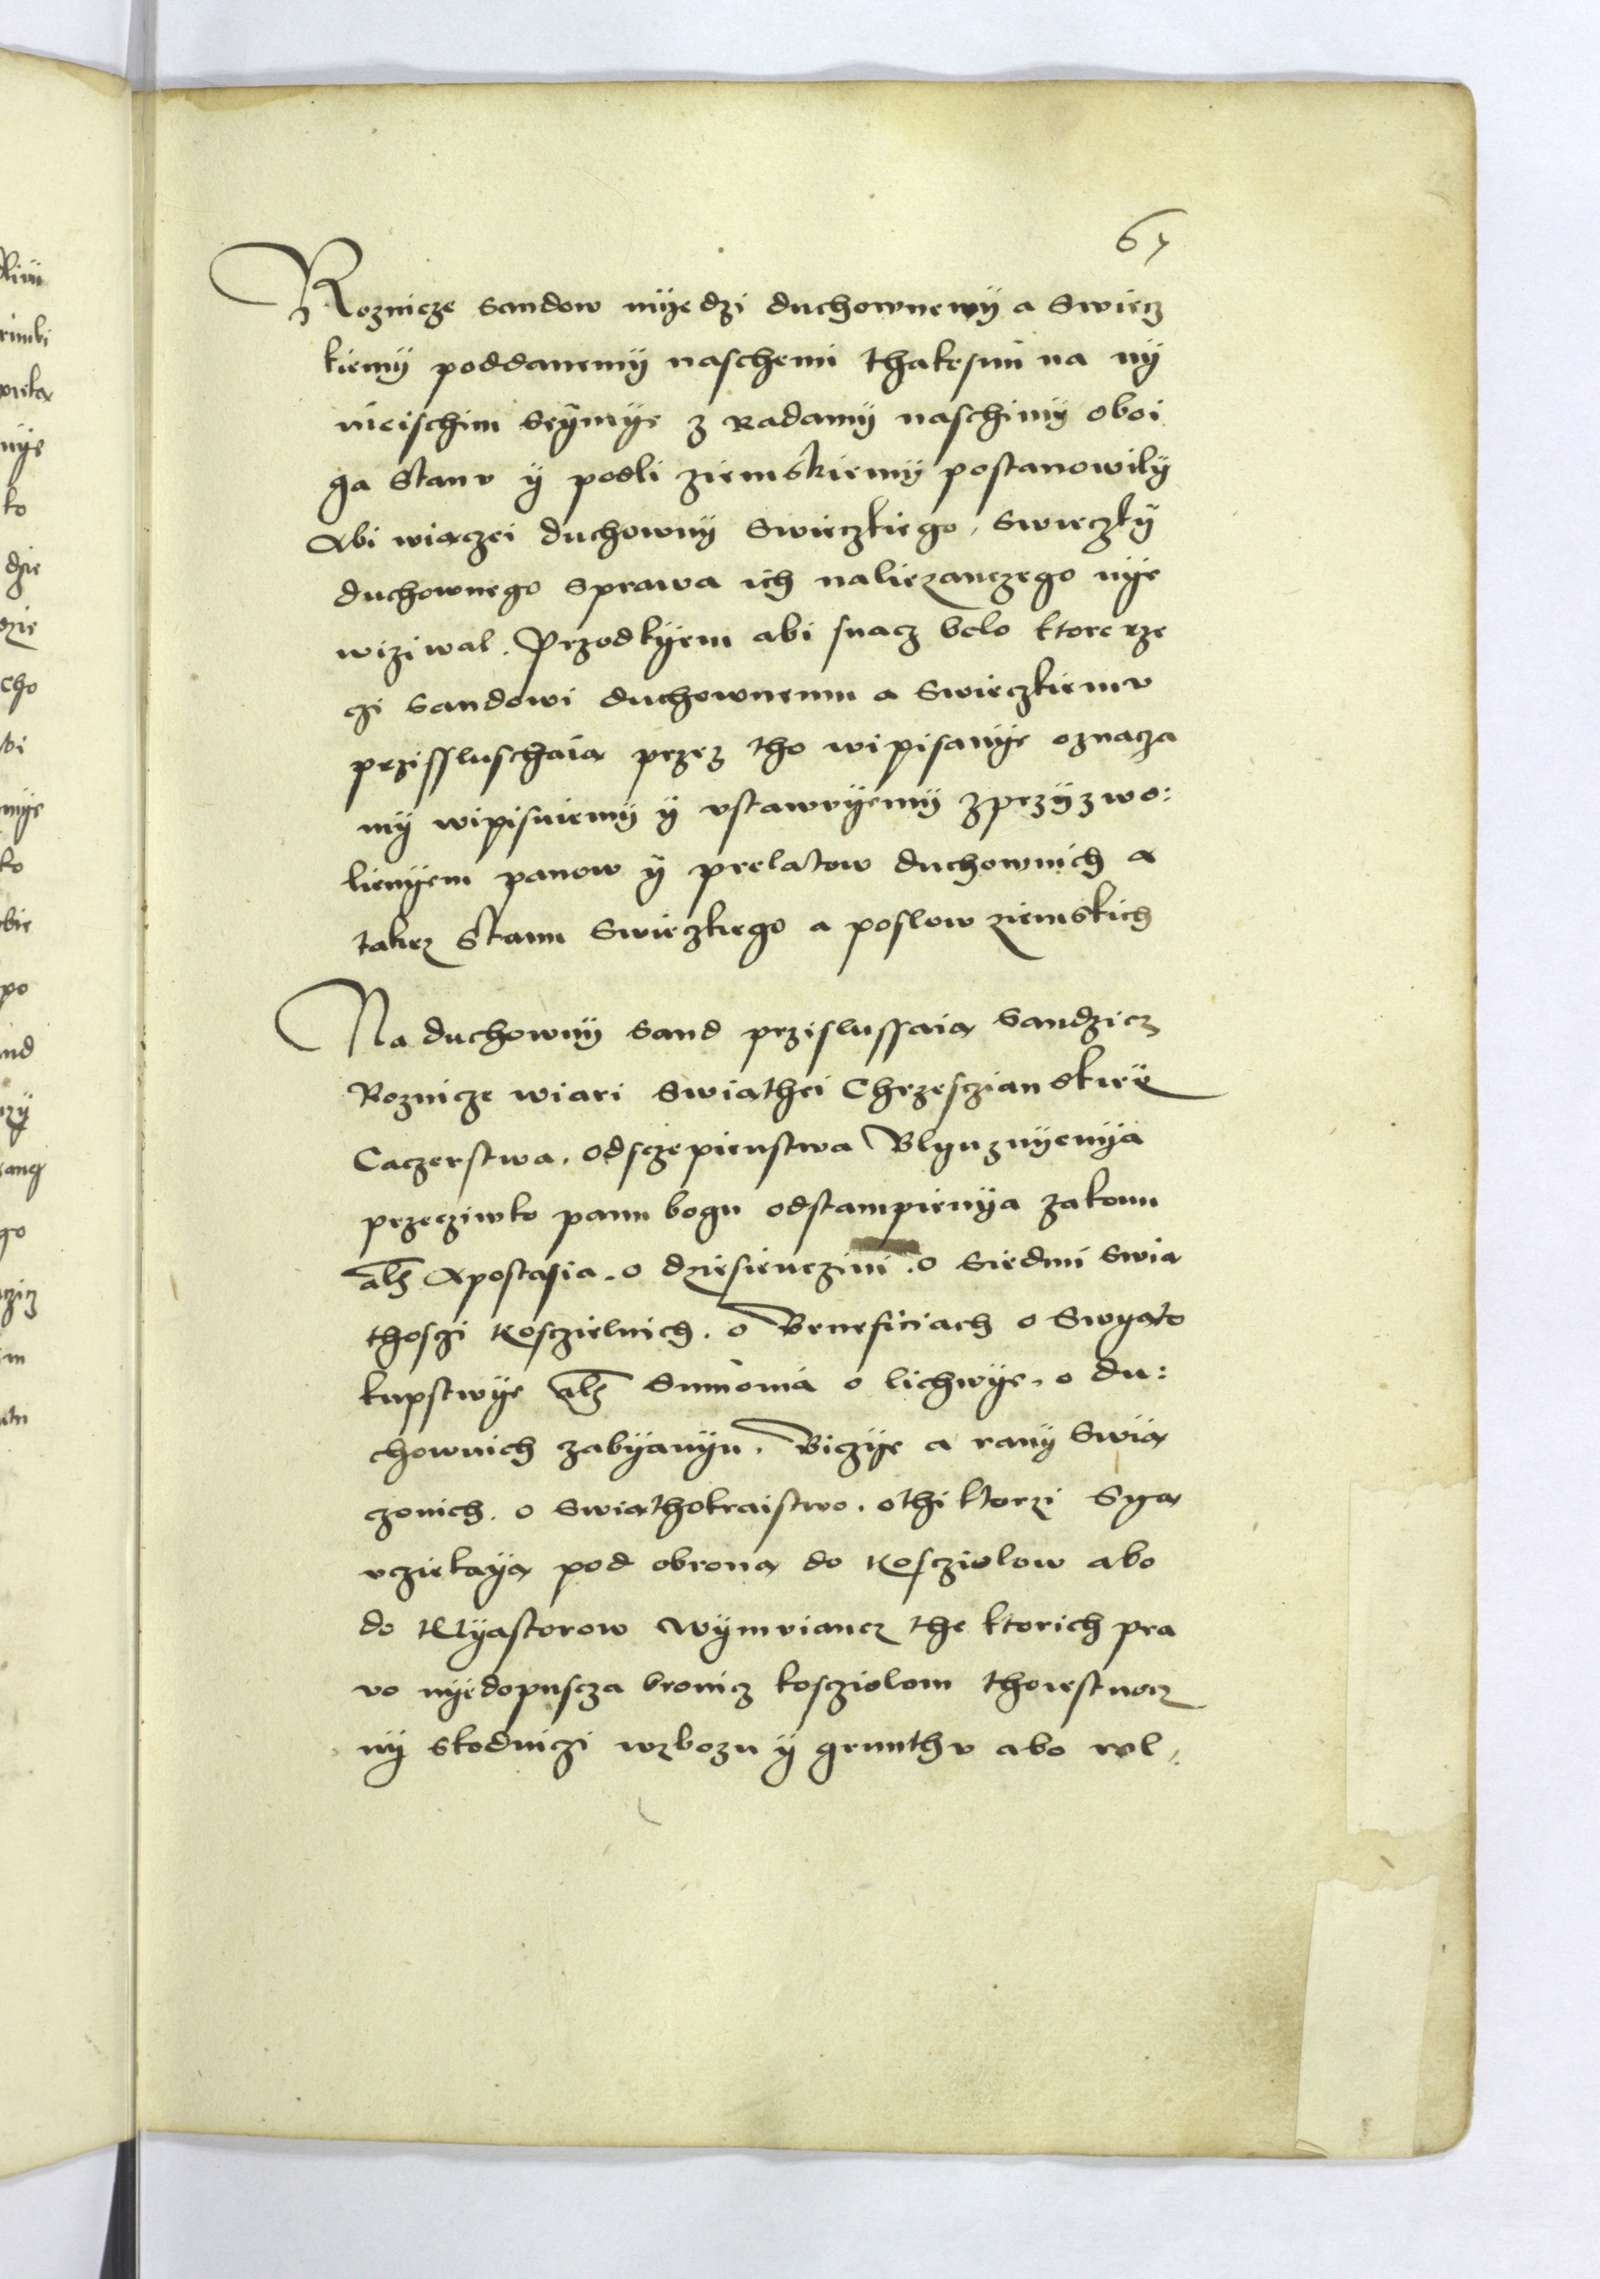 67
Roznicze sandow myedzi duchownemy a Swiecz
kiemy poddanemy naschemi thakesmi na ny
nieischim seymye z Radamy naschimy oboi
ga Stanu y podli ziemskiemy postanowily
Abi wiaczei duchowny Swieczkiego, Swieczky
duchownego sprawa ich naliezanczego nye
wiziwal. Przodkyem abi snacz belo ktore rze
czi sandowi duchownemu a swieczkiemu
przissluschaia przez tho wipisanye oznacza
my wipisuiemy y ustawuyemy z przyzwo:
lienyem panow y prelatow duchownich a
takiez Stanu Swieczkiego a poslow ziemskich
Na duchowny sand przislussaia sandzicz
Roznicze wiari Swiathei Chrzesczianskiey
Caczerstwa, odsczepienstwa Blyuznyenya
przecziwko panu bogu odstampienya zakonu
als Apostasia, o dziesienczini, o Siedmi swia
thosczi Kosczielnich, o Beneficiach o Swyato
kupstwye als Simonia o lichwye, o du:
chownich zabyanyu, Biczye a rany Swia
czonich, o Swiathokraistwo, othi ktorzi Sya
uciekaya pod obrona do Koscziolow abo
do Klyastorow wymuiancz the ktorich pra
vo nyedopuscza bronicz koscziolom thoiest nocz
ny skodniczi wzbozu y grunthu abo rol: